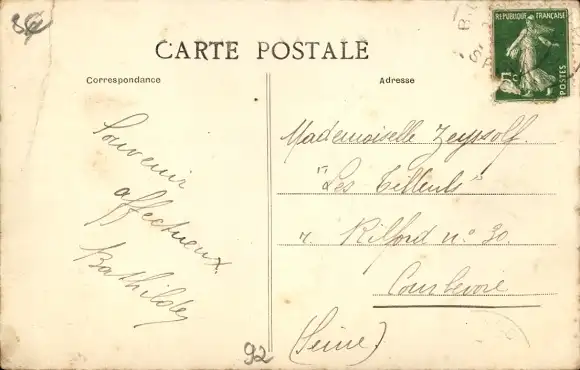 CARTE POSTALE
Correspondance
Adresse
RÉPUBLIQUE FRANÇAISE
POSTES
Souvenir
affectueux
Bathilde
Mademoiselle Zeyssolf.
"Les Tilleuls"
r. Kilford n° 30.
Courbevoie
(Seine)
92